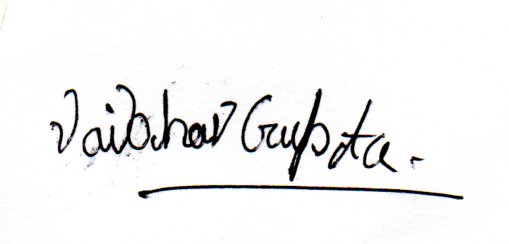 Vaibhav Gupta.